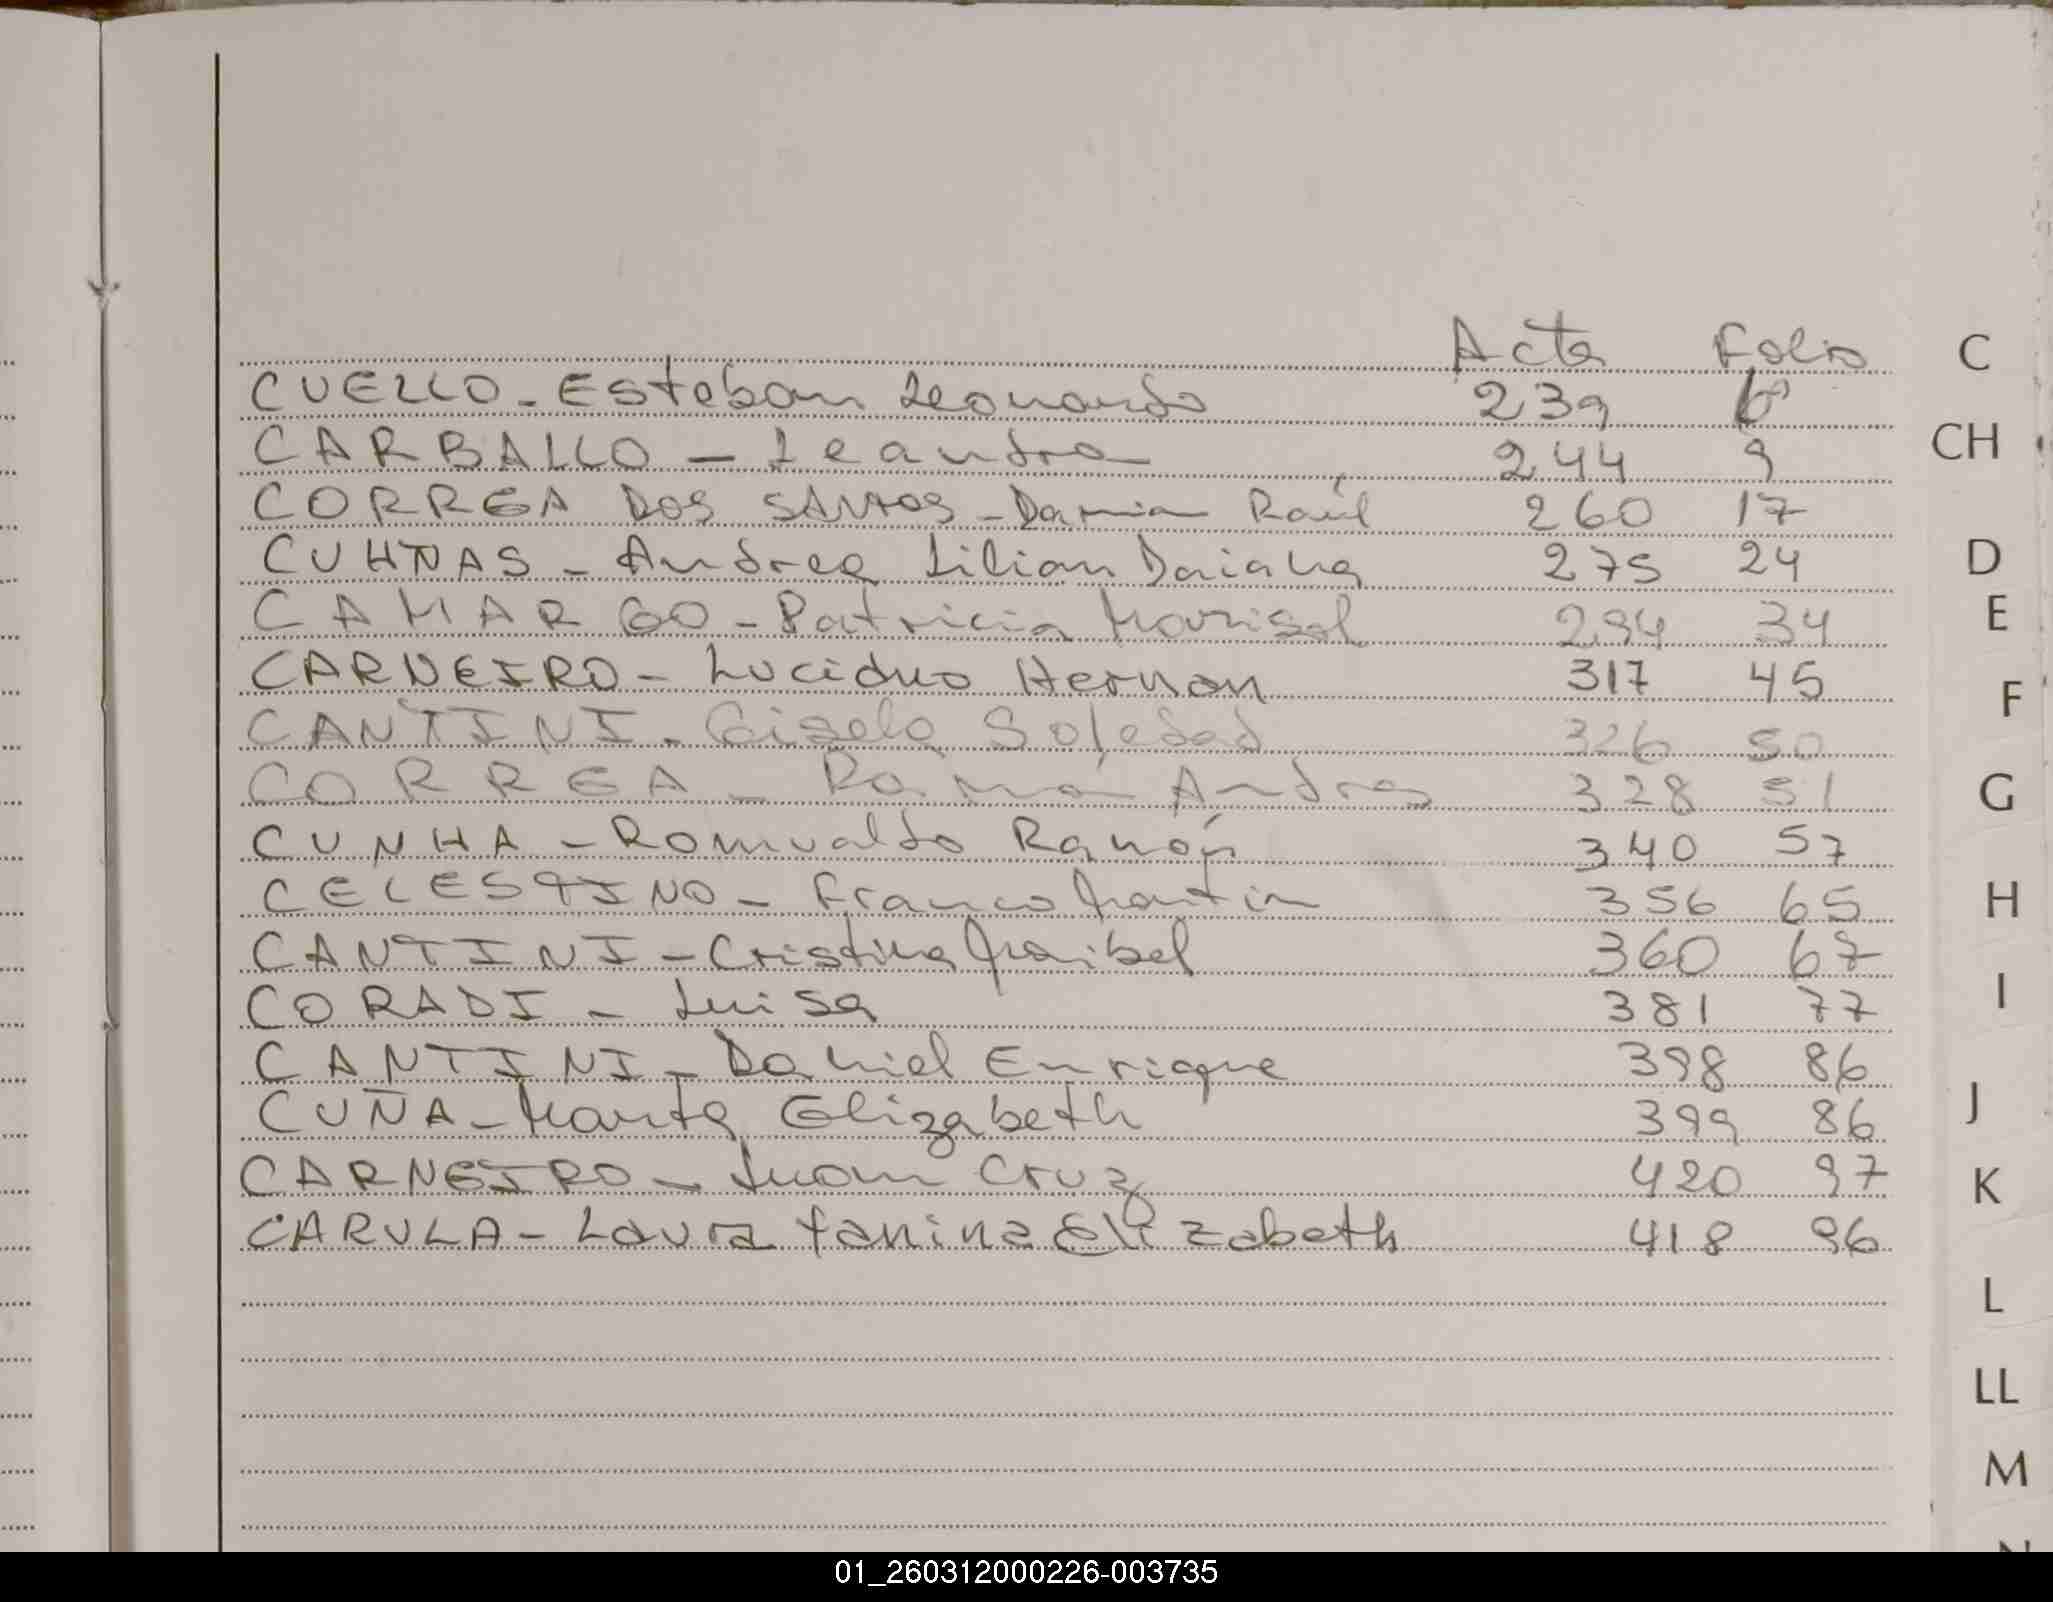 Acta Folio C
CUELLO - Esteban Leonardo 239 6
CARBALLO - Leandro 244 9 CH
CORREA DOS SANTOS - Damian Raúl 260 17
CUHNAS - Andrea Lilian Daiana 275 24 D
CAMARGO - Patricia Marisol 294 34 E
CARNEIRO - Luciano Hernan 317 45
F
CANTINI - Gisela Soledad 326 50
CORREA - Andres 328 51 G
CUNHA - Romualdo Ramón 340 57
CELESTINO - Franco Martin 356 65 H
CANTINI - Cristina Maribel 360 67
CORADI - Luisa 381 77 I
CANTINI - Daniel Enrique 398 86
CUÑA - Marta Elizabeth 399 86 J
CARNEIRO - Juan Cruz 420 97 K
CARULA - Laura Yanina Elizabeth 418 96
L
LL
M
01_260312000226-003735